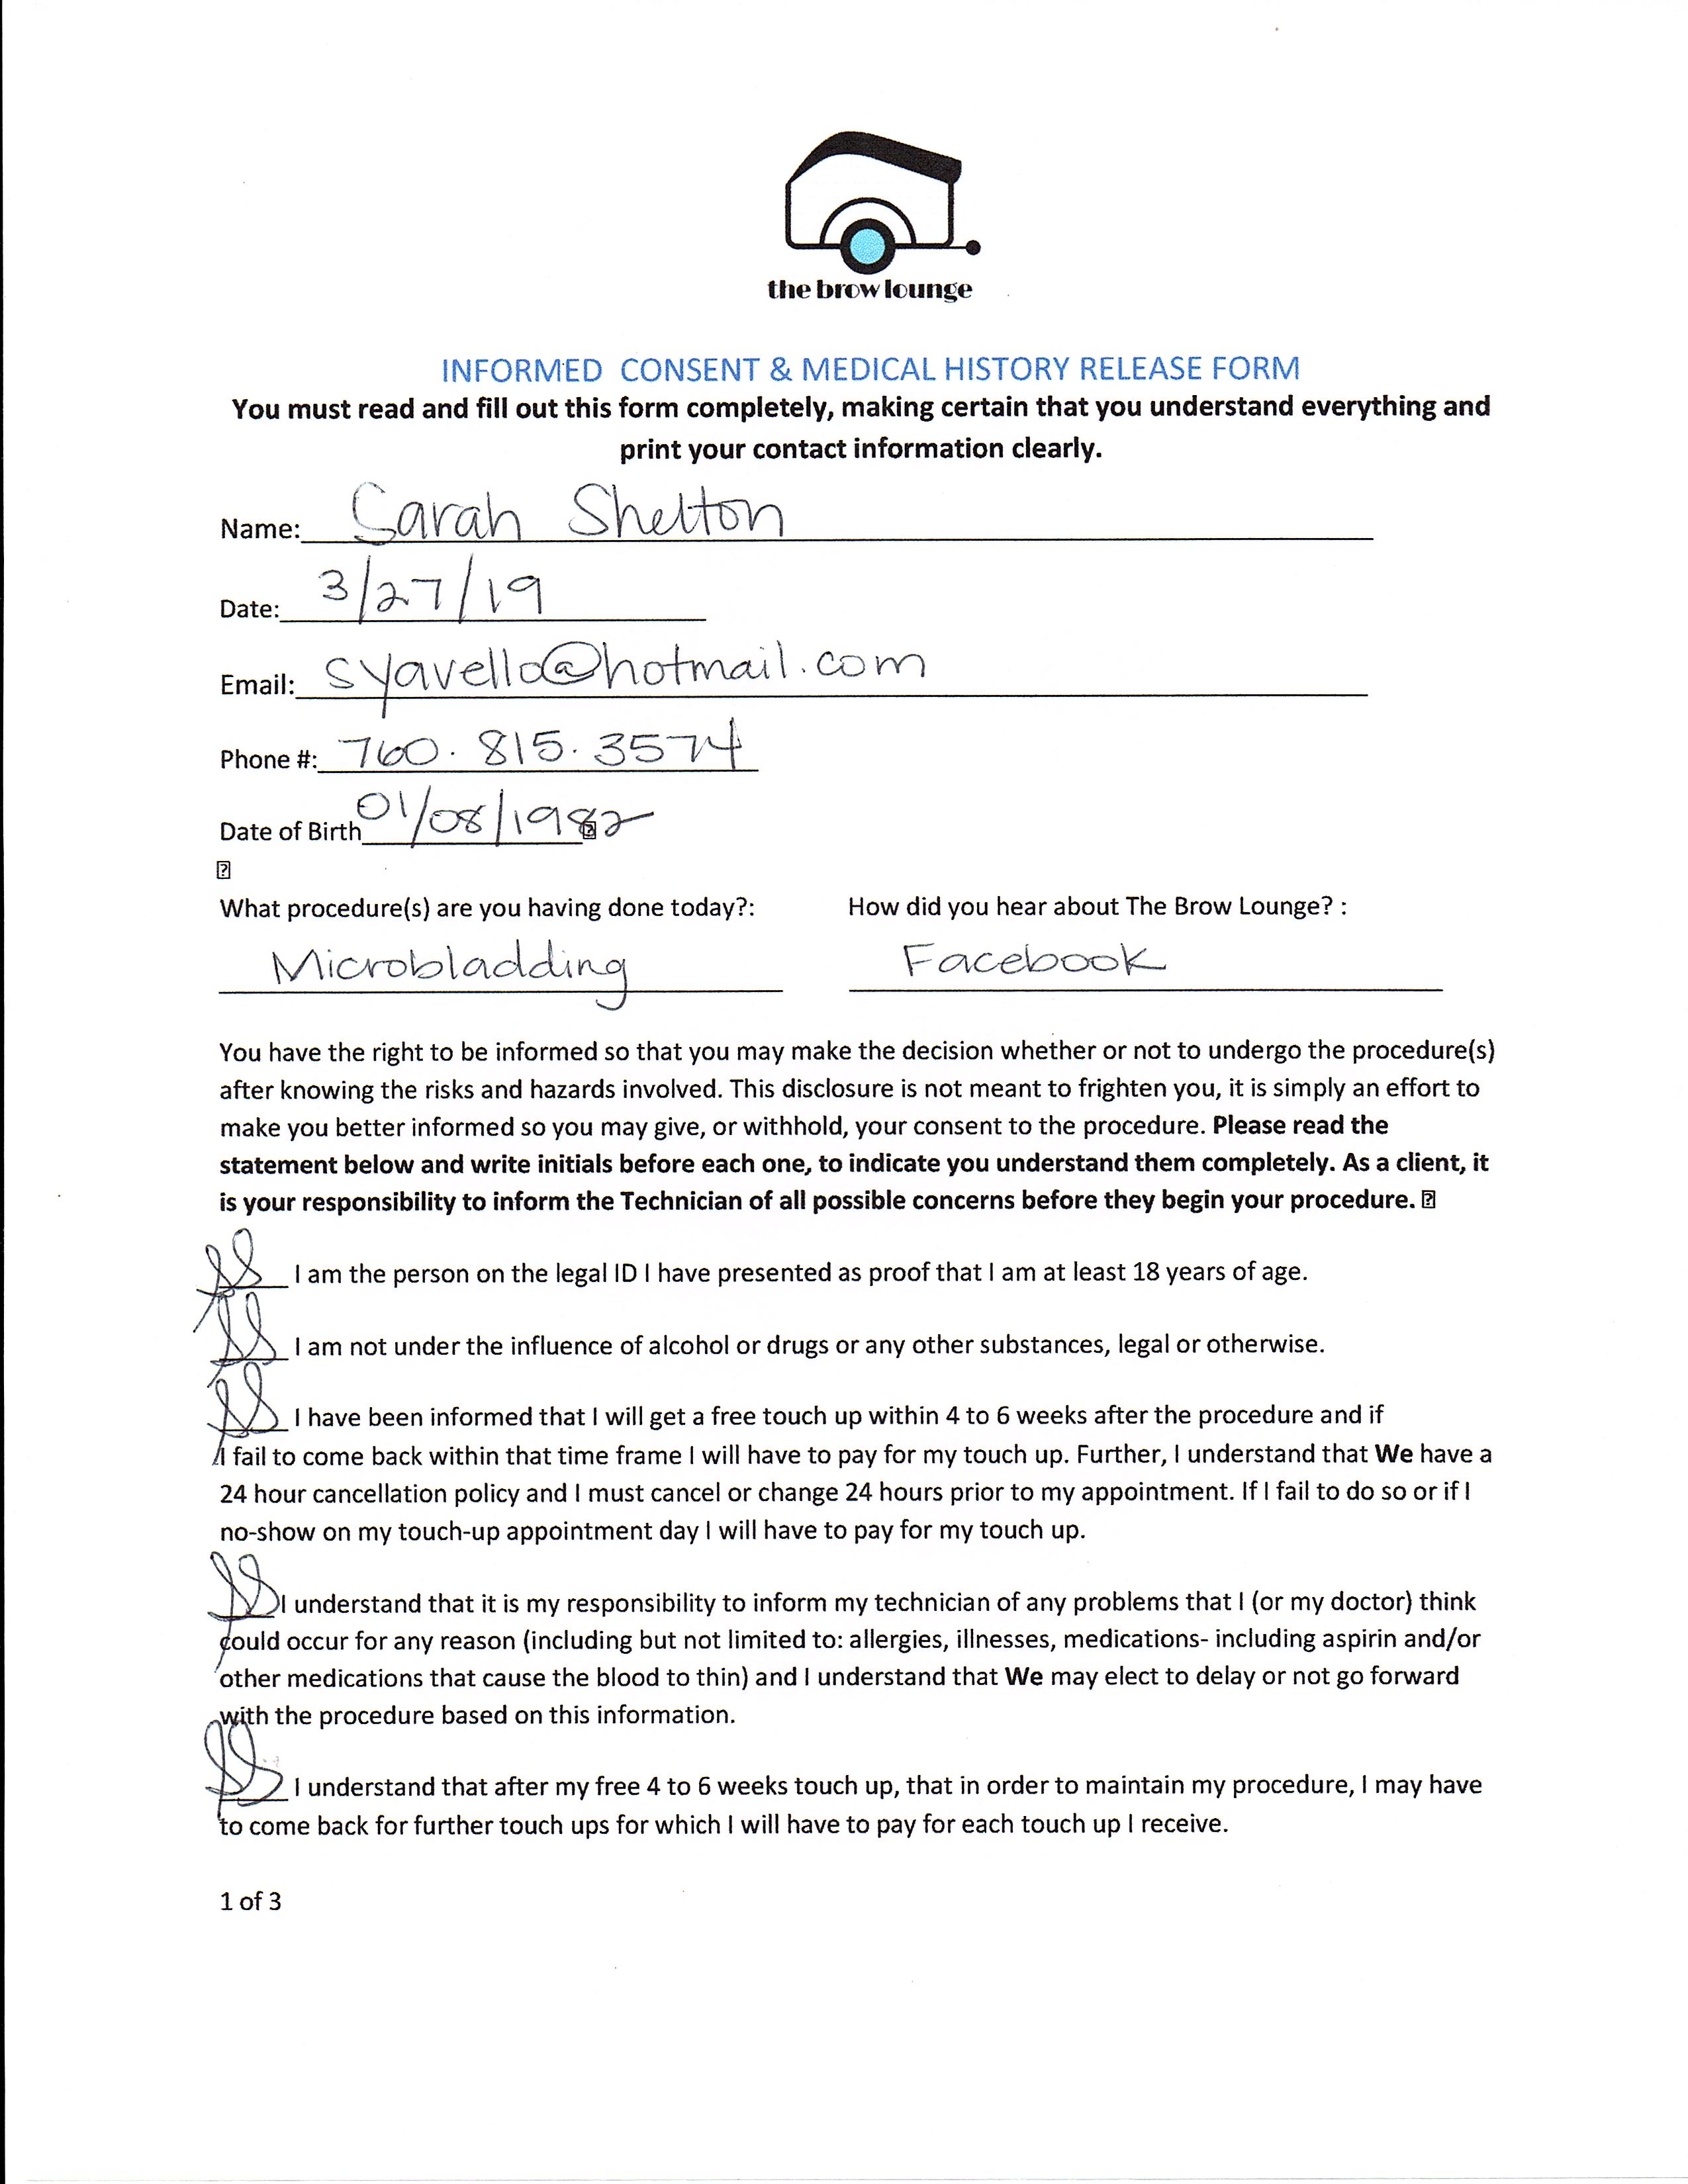 the brow lounge
INFORMED CONSENT & MEDICAL HISTORY RELEASE FORM
You must read and fill out this form completely, making certain that you understand everything and
print your contact information clearly.
Name: Sarah Shelton
Date: 3/27/19
Email: syavello@hotmail.com
Phone #: 760.815.3574
Date of Birth 01/08/1982
What procedure(s) are you having done today?: How did you hear about The Brow Lounge? :
Microbladding Facebook
You have the right to be informed so that you may make the decision whether or not to undergo the procedure(s)
after knowing the risks and hazards involved. This disclosure is not meant to frighten you, it is simply an effort to
make you better informed so you may give, or withhold, your consent to the procedure. Please read the
statement below and write initials before each one, to indicate you understand them completely. As a client, it
is your responsibility to inform the Technician of all possible concerns before they begin your procedure.
SS I am the person on the legal ID I have presented as proof that I am at least 18 years of age.
SS I am not under the influence of alcohol or drugs or any other substances, legal or otherwise.
SS I have been informed that I will get a free touch up within 4 to 6 weeks after the procedure and if
I fail to come back within that time frame I will have to pay for my touch up. Further, I understand that We have a
24 hour cancellation policy and I must cancel or change 24 hours prior to my appointment. If I fail to do so or if I
no-show on my touch-up appointment day I will have to pay for my touch up.
SS I understand that it is my responsibility to inform my technician of any problems that I (or my doctor) think
could occur for any reason (including but not limited to: allergies, illnesses, medications- including aspirin and/or
other medications that cause the blood to thin) and I understand that We may elect to delay or not go forward
with the procedure based on this information.
SS I understand that after my free 4 to 6 weeks touch up, that in order to maintain my procedure, I may have
to come back for further touch ups for which I will have to pay for each touch up I receive.
1 of 3